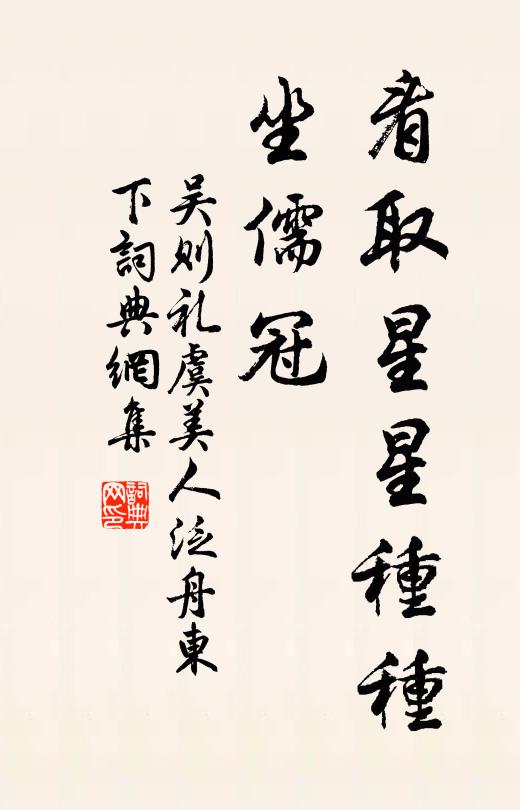 看取星星種種
坐儒冠
吴则礼虞美人泛舟東
下詞典網集
詞典
网印